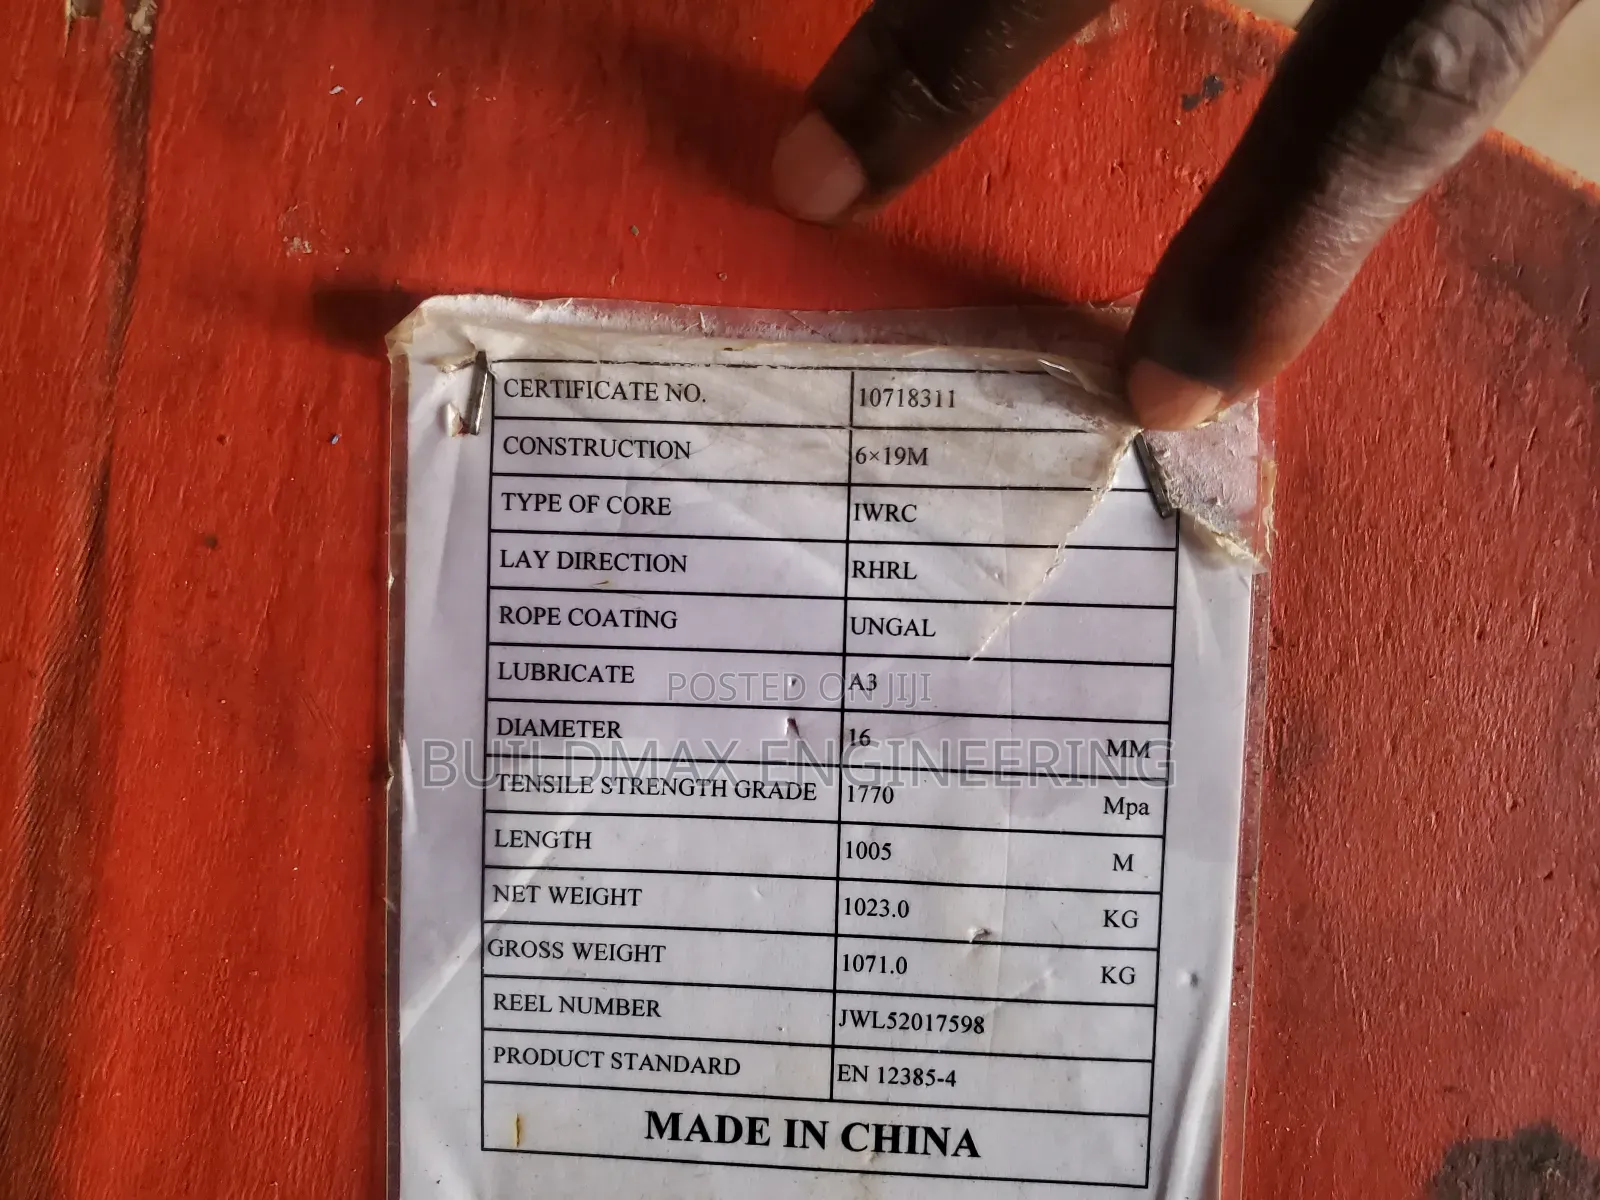 CERTIFICATE NO. 10718311
CONSTRUCTION 6×19M
TYPE OF CORE IWRC
LAY DIRECTION RHRL
ROPE COATING UNGAL
LUBRICATE A3
POSTED ON JIJI
DIAMETER 16 MM
BUILDMAX ENGINEERING
TENSILE STRENGTH GRADE 1770 Mpa
LENGTH 1005 M
NET WEIGHT 1023.0 KG
GROSS WEIGHT 1071.0 KG
REEL NUMBER JWL52017598
PRODUCT STANDARD EN 12385-4
MADE IN CHINA